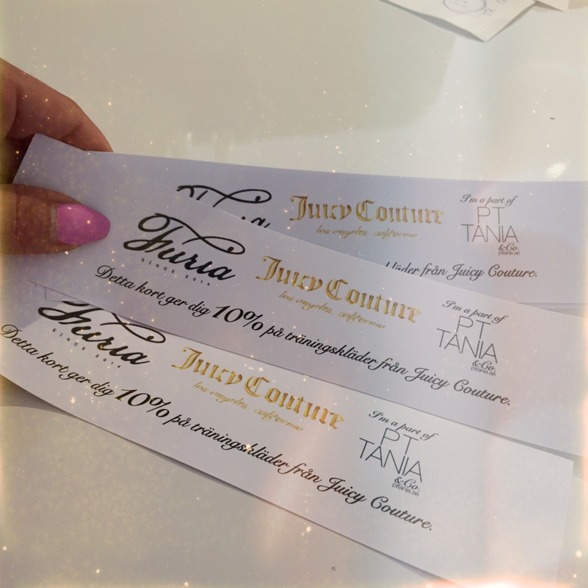 Juicy Couture
los angeles california
I'm a part of
PT
TANIA
& Co.
kläder från Juicy Couture.
Furia
SINCE 2014
Juicy Couture
los angeles california
I'm a part of
PT
TANIA
& Co.
Detta kort ger dig 10% på träningskläder från Juicy Couture.
Furia
Juicy Couture
los angeles california
I'm a part of
PT
TANIA
& Co.
Detta kort ger dig 10% på träningskläder från Juicy Couture.